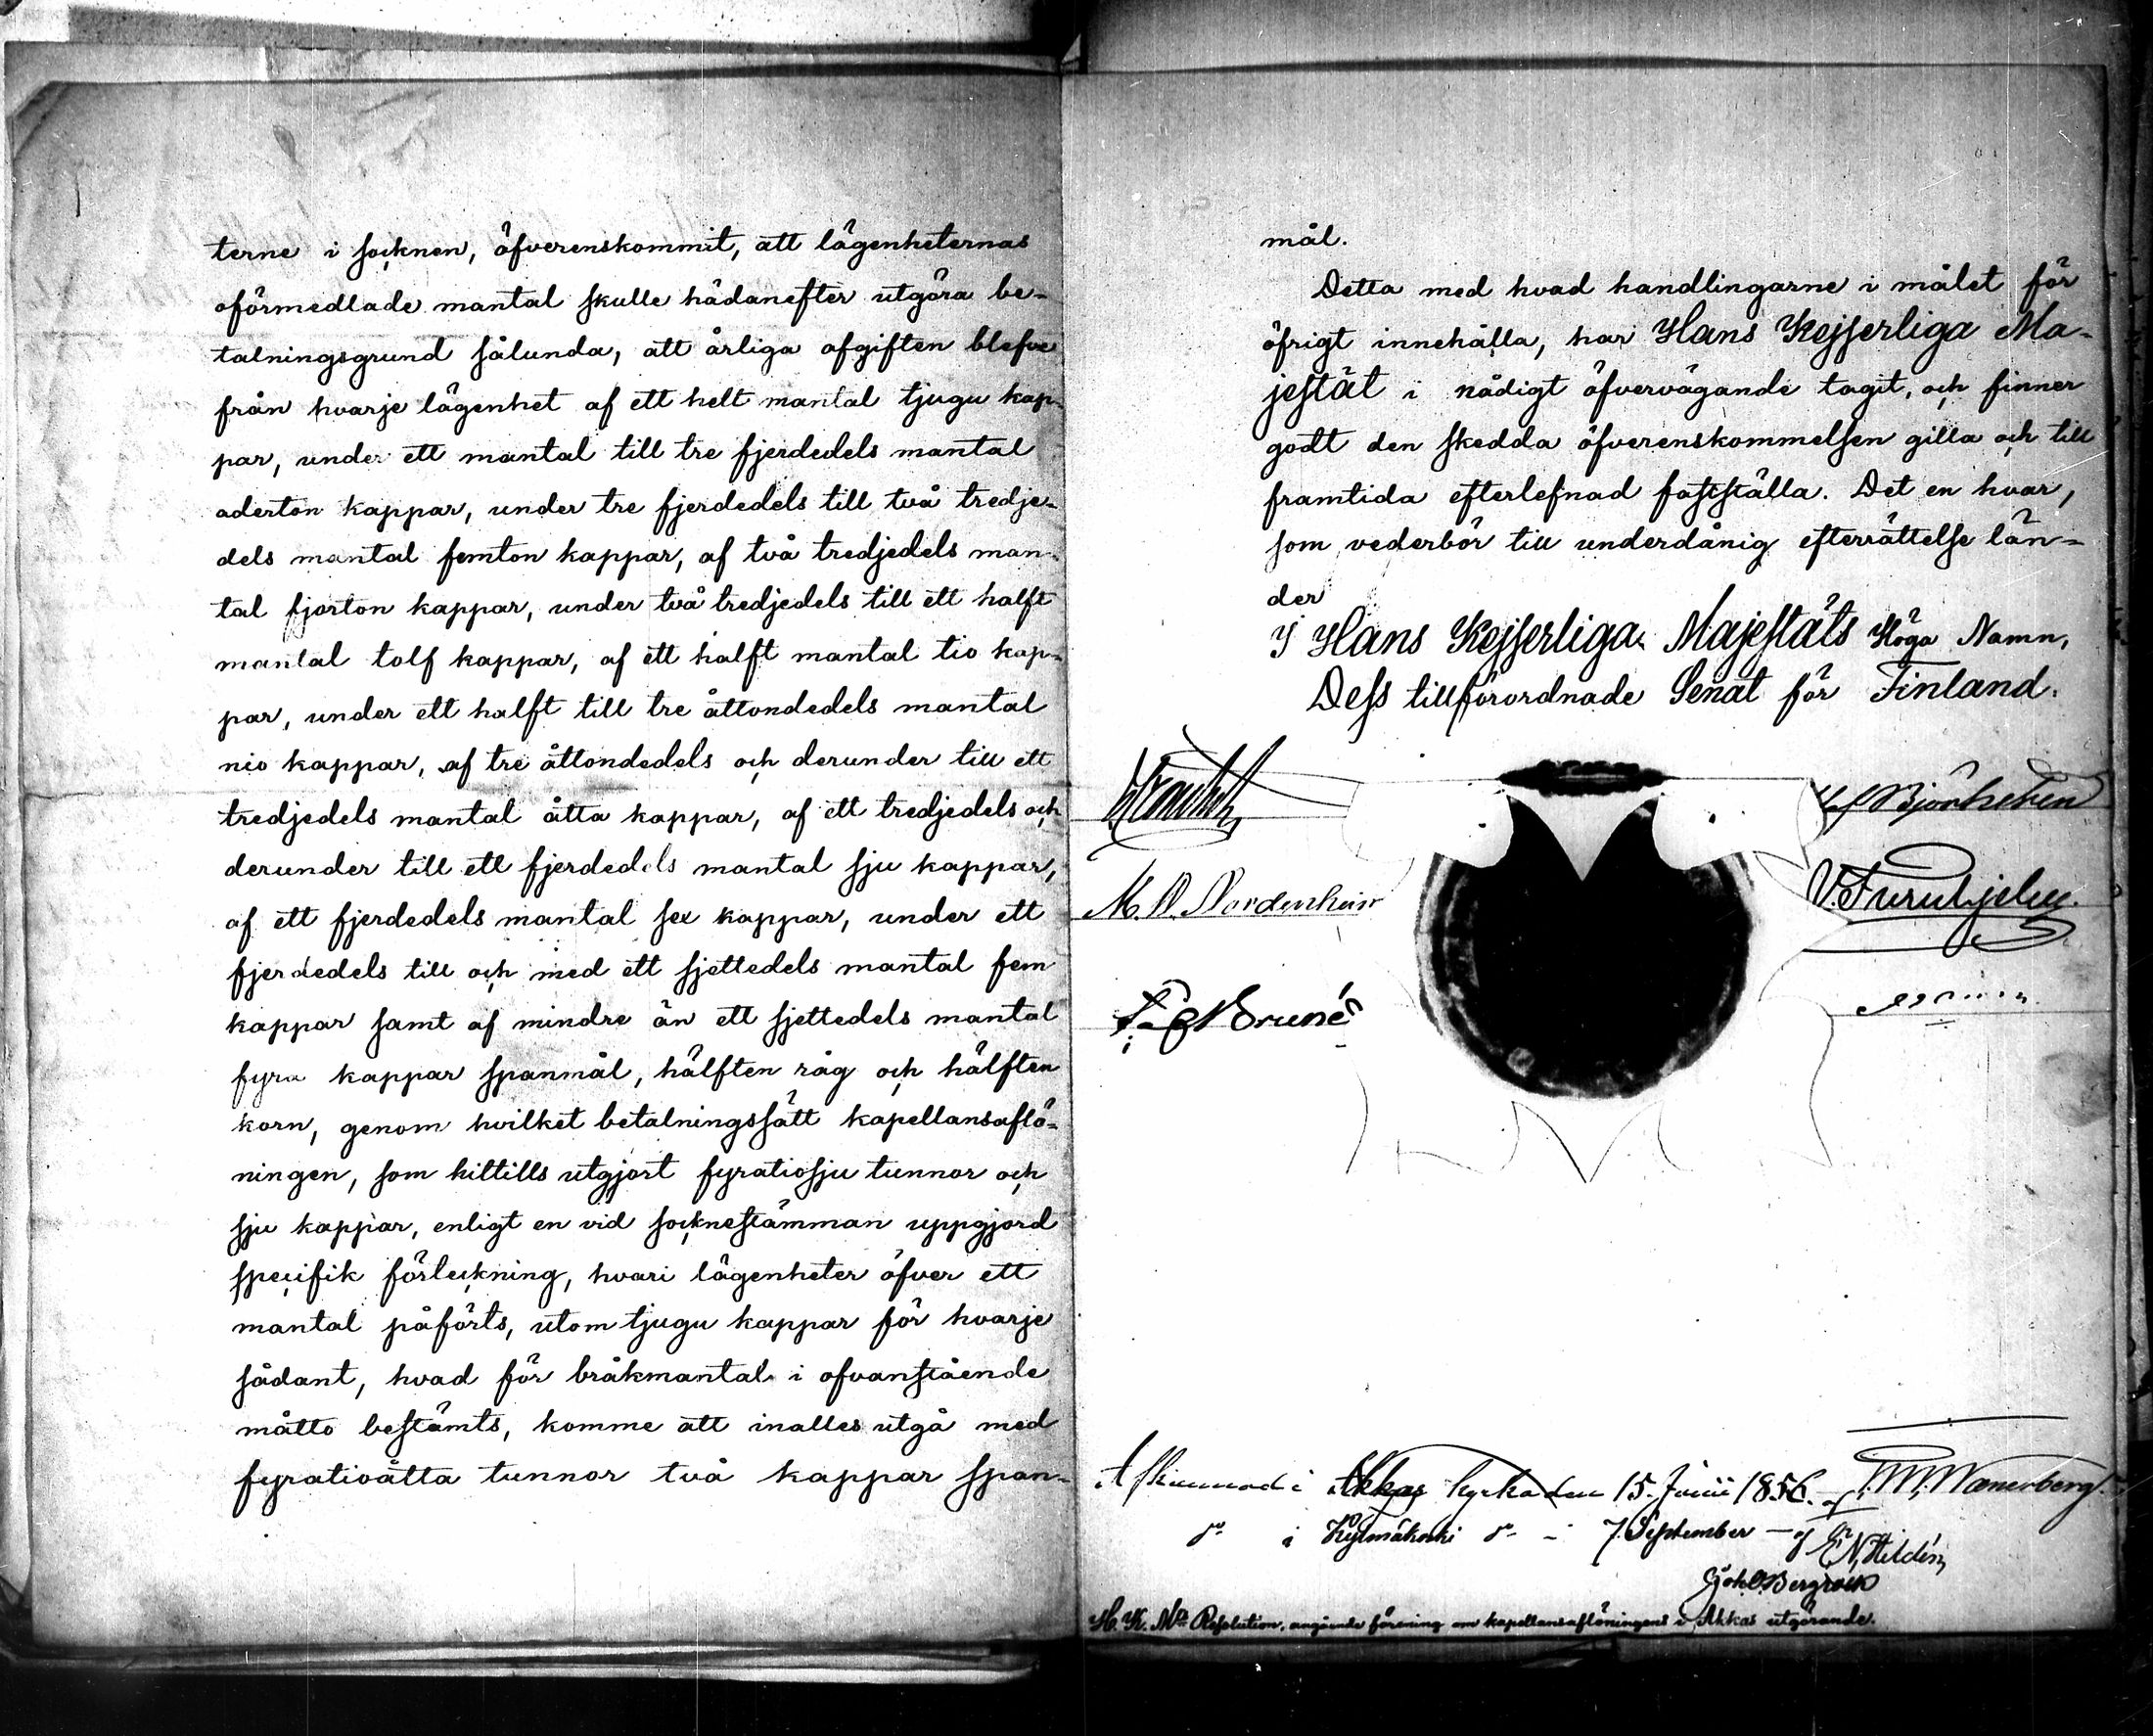 terne i socknen, öfverenskommit, att lägenheternas
oförmedlade mantal skulle hädanefter utgöra be-
talningsgrund sålunda, att årliga afgiften blefve
från hvarje lägenhet af ett helt mantal tjugu kap-
par, under ett mantal till tre fjerdedels mantal
aderton kappar, under tre fjerdedels till två tredje-
dels mantal femton kappar, af två tredjedels man-
tal fjorton kappar, under två tredjedels till ett halft
mantal tolf kappar, af ett halft mantal tio kap-
par, under ett halft till tre åttondedels mantal
nio kappar, af tre åttondedels och derunder till ett
tredjedels mantal åtta kappar, af ett tredjedels och
derunder till ett fjerdedels mantal sju kappar,
af ett fjerdedels mantal sex kappar, under ett
fjerdedels till och med ett sjettedels mantal fem
kappar samt af mindre än ett sjettedels mantal
fyra kappar spanmål, hälften råg och hälften
korn, genom hvilket betalningssätt kapellansaflö-
ningen, som hittills utgjort fyratiosju tunnor och
sju kappar, enligt en vid socknestämman uppgjord
specifik förteckning, hvari lägenheter öfver ett
mantal påförts, utom tjugu kappar för hvarje
sådant, hvad för bråkmantal i ofvanstående
måtto bestämts, komme att inalles utgå med
fyratioåtta tunnor två kappar span-
mål.
Detta med hvad handlingarne i målet för
öfrigt innehålla, har Hans Kejserliga Ma-
jestät i nådigt öfvervägande tagit, och finner
godt den skedda öfverenskommelsen gilla och till
framtida efterlefnad fastställa. Det en hvar,
som vederbör till underdånig efterrättelse län-
der
I Hans Kejserliga Majestäts Höga Namn,
Dess tillförordnade Senat för Finland.
Björksten
M. D. Nordenheim
V. Furuhjelm.
Bruné
i Akkas kyrka den 15. Junii 1856. Wanerberg.
i Kylmäkoski 7. September
E N Hildén
Joh. Bergroth
H. K. Mts Resolution, angående förening om kapellansaflöningens i Akkas utgörande.